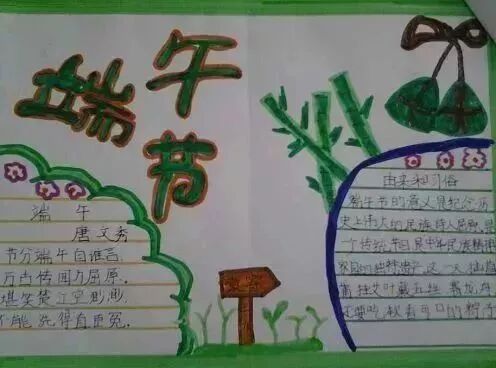 端午节
端 午
唐 文秀
节分端午自谁言，
万古传闻为屈原。
堪笑楚江空渺渺，
不能洗得直臣冤。
由来和习俗
端午节的意义是纪念历
史上伟大的民族诗人屈原，是
一个传统节日是中华民族精神
家园的独特遗产，这一天，仙庭
需挂艾叶戴五丝 赛龙舟
还要吃 香可口的粽子